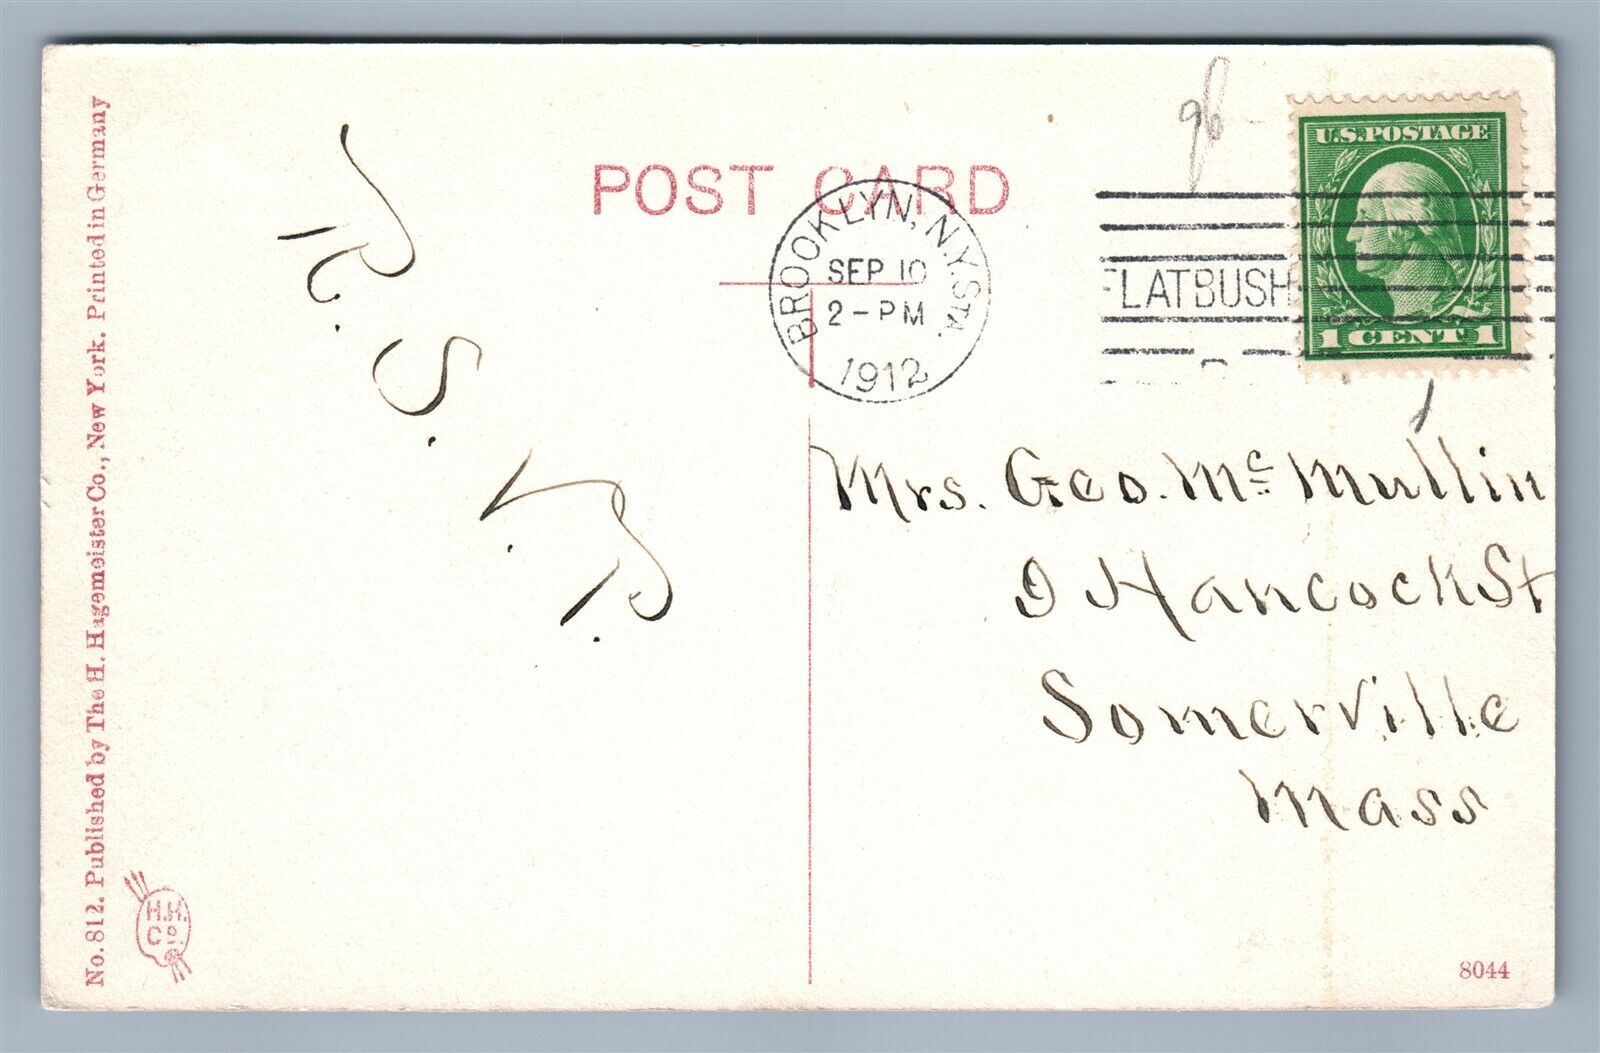 POST CARD
BROOKLYN, N.Y. STA.
SEP 10
2-PM
1912
FLATBUSH
U.S.POSTAGE
1 CENT 1
R. S. V. P.
Mrs. Geo. Mc Mullin
9 Hancock St
Somerville
Mass
No. 812. Published by The H. Hagemeister Co., New York. Printed in Germany
H.H.
Co.
8044